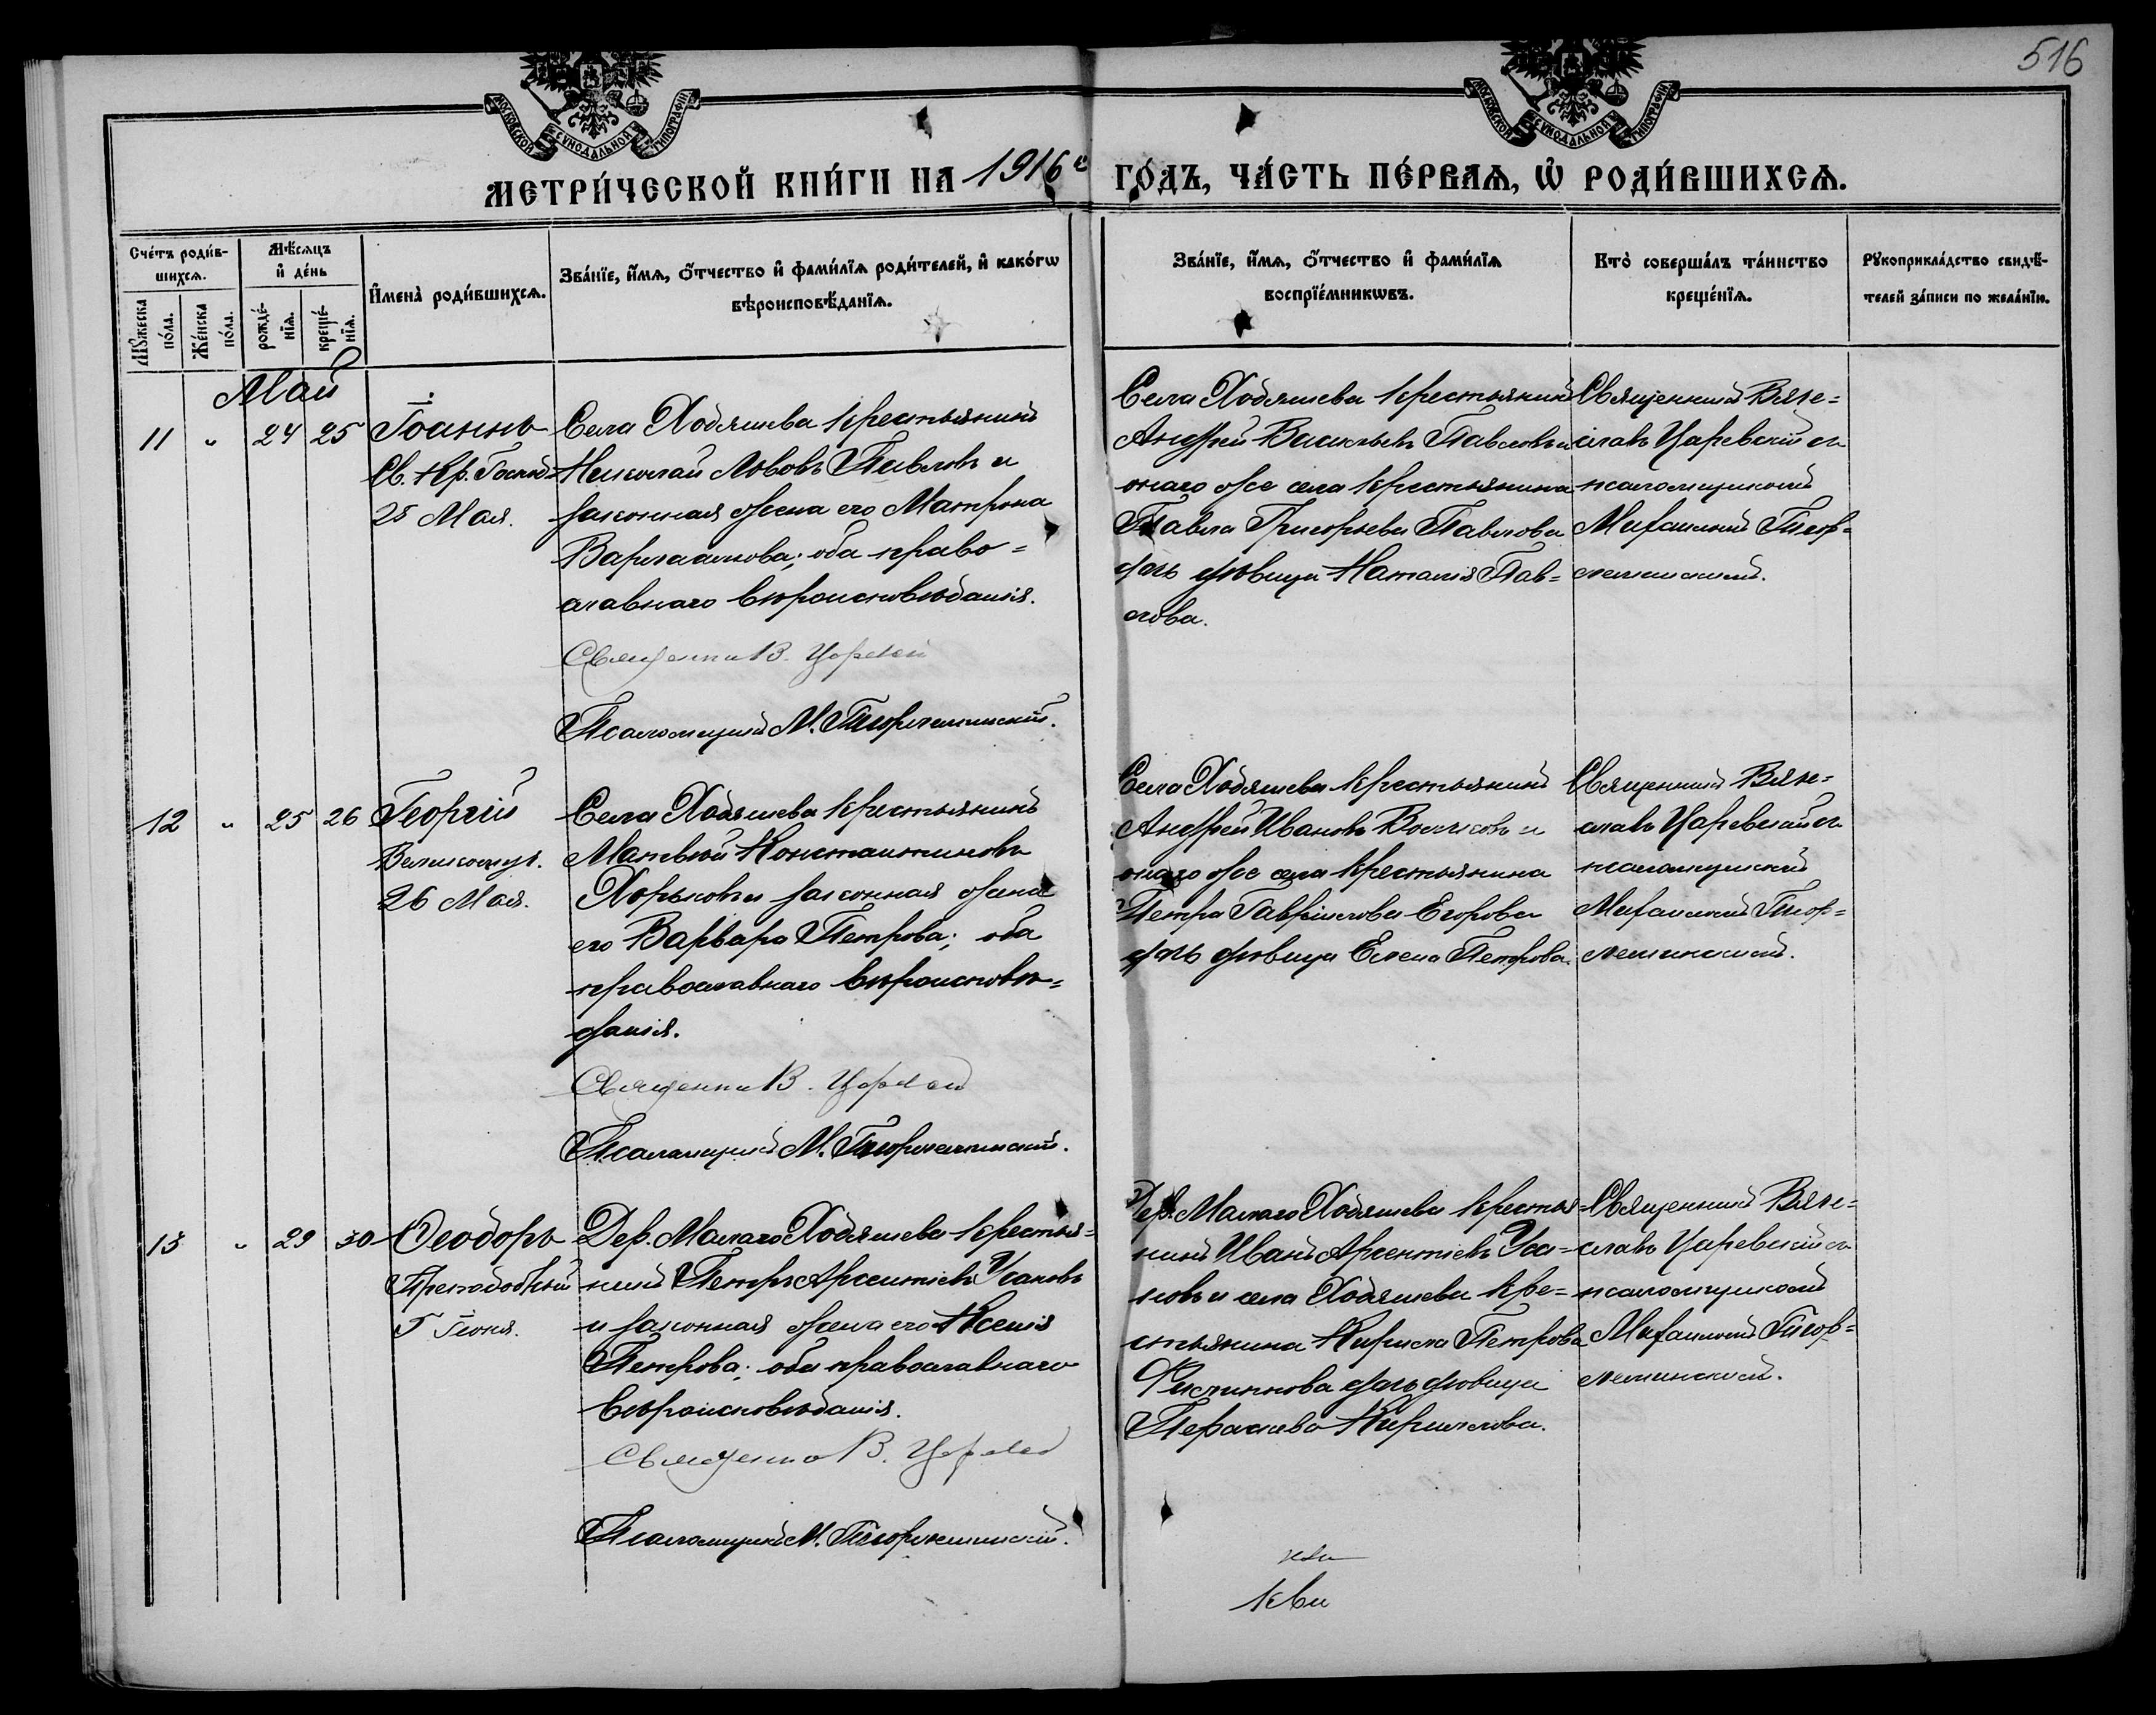 516
МОСКОВСКОЙ СѴНОДАЛЬНОЙ ТИПОГРАФІИ
МОСКОВСКОЙ СѴНОДАЛЬНОЙ ТИПОГРАФІИ
МЕТРИ́ЧЕСКОЙ КНИ́ГИ НА 1916 й ГО́ДЪ, ЧА́СТЬ ПЕ́РВАѦ, Ѡ РОДИ́ВШИХСѦ.
Сче́тъ роди́в-
шихсѧ.
Мꙋжеска по́ла.
Же́нска по́ла.
Мѣ́сѧцъ
и҆ де́нь
рожде́-
нїѧ.
креще́-
нїѧ.
И҆мена̀ роди́вшихсѧ.
Зва́нїе, и҆́мѧ, ѻ҆́тчество и҆ фами́лїѧ роди́телей, и҆ како́гѡ
вѣроисповѣ́данїѧ.
Зва́нїе, и҆́мѧ, ѻ҆́тчество и҆ фами́лїѧ
воспрїе́мникѡвъ.
Кто̀ соверша́лъ та́инство
креще́нїѧ.
Рꙋкоприкла́дство свидѣ́-
телей за́писи по жела́нїю.
Май
11 " 24 25
Іоаннъ
Св. Кр. Господ.
25 Мая.
Села Ходяшева крестьянинъ
Николай Львовъ Павловъ и
законная жена его Матрона
Варлаамова; оба право=
славнаго вѣроисповѣданія.
Священник В. Царевский
Псаломщикъ М.
Села Ходяшева крестьянинъ
Андрей Васильевъ Павловъ и
онаго же села крестьянина
Павла Григорьева Павлова
дочь дѣвица Наталія Пав=
лова.
Священникъ Вяче=
славъ Царевскій съ
псаломщикомъ
Михаиломъ
12 " 25 26
Георгій
Великомуч.
26 Мая.
Села Ходяшева крестьянинъ
Матвѣй Константиновъ
Хорьковъ и законная жена
его Варвара Петрова; оба
православнаго вѣроисповѣ=
данія.
Священник В. Царевский
Псаломщикъ М.
Села Ходяшева крестьянинъ
Андрей Ивановъ и
онаго же села крестьянина
Петра Гавріилова Егорова
дочь дѣвица Елена Петрова.
Священникъ Вяче=
славъ Царевскій съ
псаломщикомъ
Михаиломъ
13 " 29 30
Ѳеодоръ
Преподобный
5 Іюня.
Дер. Малаго Ходяшева крестья=
нинъ Петръ Арсентіевъ Усановъ
и законная жена его Ксенія
Петрова; оба православнаго
вѣроисповѣданія.
Священник В. Царевский
Псаломщикъ М.
Дер. Малаго Ходяшева крестья=
нинъ Иванъ Арсентіевъ Уса=
новъ и села Ходяшева кре=
стьянина Кирила Петрова
дочь дѣвица
Кириллова.
Священникъ Вяче=
славъ Царевскій съ
псаломщикомъ
Михаиломъ